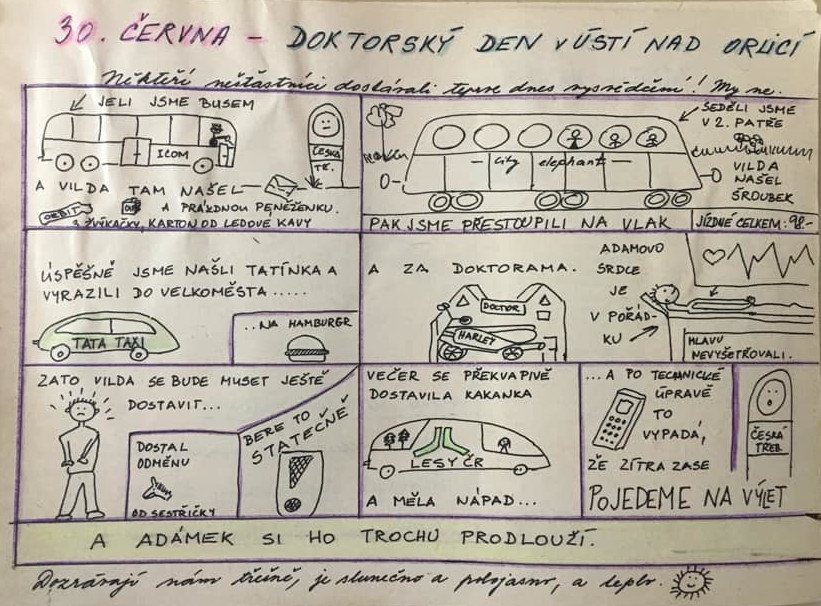 30. ČERVNA - DOKTORSKÝ DEN V ÚSTÍ NAD ORLICÍ
Někteří nešťastníci dostávali teprve dnes vysvědčení! My ne.
JELI JSME BUSEM
ICOM
ČESKÁ
TŘ.
A VILDA TAM NAŠEL
ORBIT
A PRÁZDNOU PENĚŽENKU.
3 ŽVÝKAČKY, KARTON OD LEDOVÉ KÁVY
SEDĚLI JSME
V 2. PATŘE
City elephant
VILDA
NAŠEL
ŠROUBEK
PAK JSME PŘESTOUPILI NA VLAK
JÍZDNÉ CELKEM: 98.-
ÚSPĚŠNĚ JSME NAŠLI TATÍNKA A
VYRAZILI DO VELKOMĚSTA.....
TATA TAXI
..NA HAMBURGR
A ZA DOKTORAMA.
DOCTOR
HARLEY
ADAMOVO
SRDCE
JE
V POŘÁD-
KU
HLAVU
NEVYŠETŘOVALI.
ZATO VILDA SE BUDE MUSET JEŠTĚ
DOSTAVIT...
DOSTAL
ODMĚNU
OD SESTŘIČKY
BERE TO
STATEČNĚ
VEČER SE PŘEKVAPIVĚ
DOSTAVILA KAKANKA
LESY ČR
A MĚLA NÁPAD...
...A PO TECHNICKÉ
ÚPRAVĚ
TO
VYPADÁ,
ŽE ZÍTRA ZASE
POJEDEME NA VÝLET
ČESKÁ
TŘEB.
A ADÁMEK SI HO TROCHU PRODLOUŽÍ.
Dozrávají nám třešně, je slunečno a polojasno, a teplo.